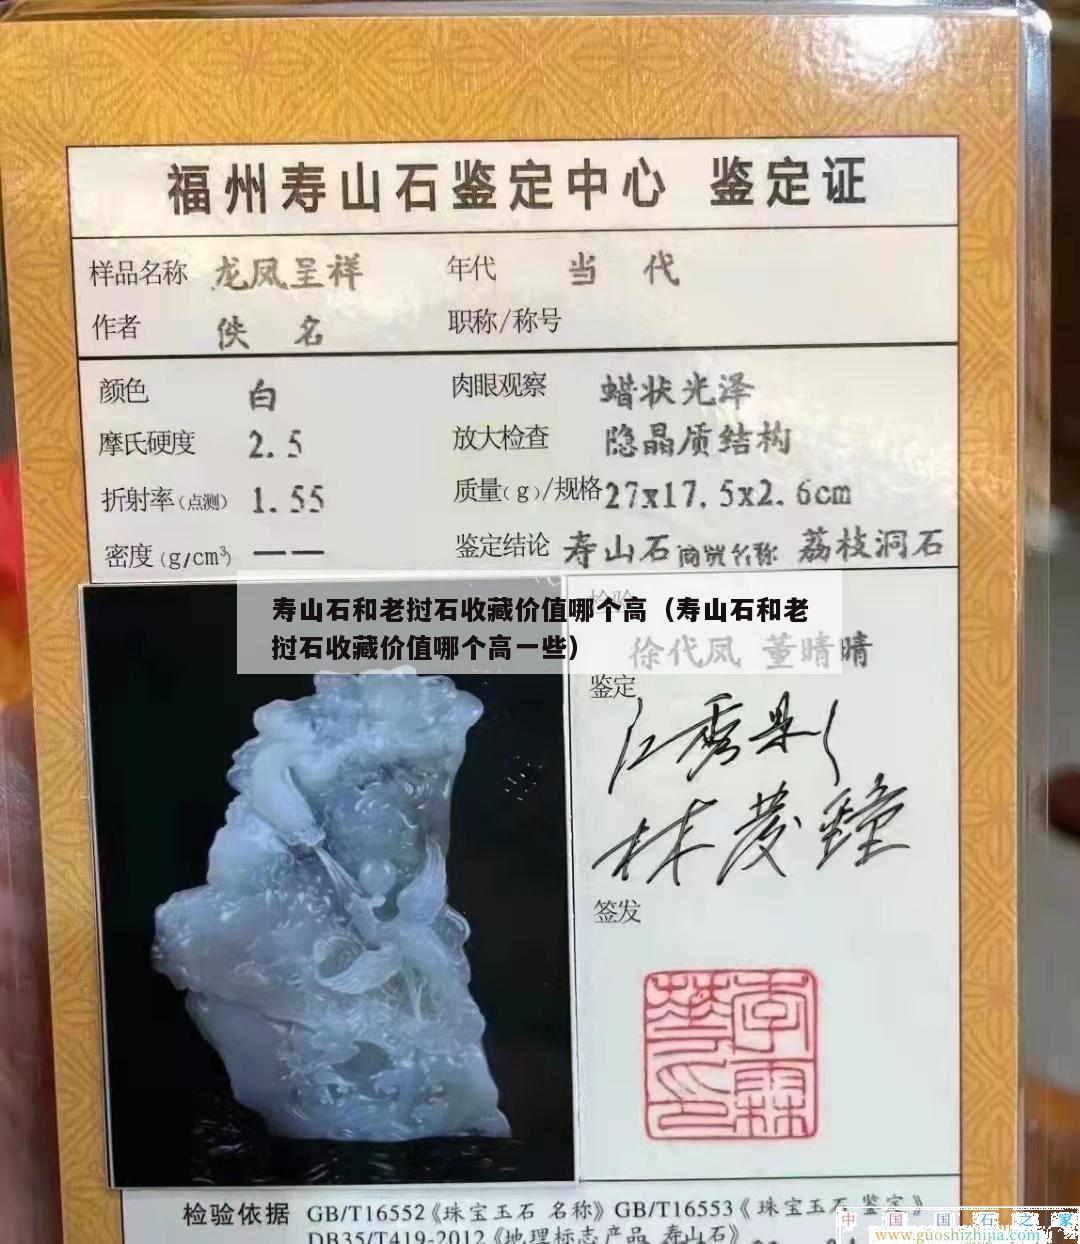 福州寿山石鉴定中心 鉴定证
样品名称 龙凤呈祥 年代 当 代
作者 佚 名 职称/称号
颜色 白 肉眼观察 蜡状光泽
摩氏硬度 2.5 放大检查 隐晶质结构
折射率(点测) 1.55 质量(g)/规格 27x17.5x2.6cm
密度(g/cm³) —— 鉴定结论 寿山石 商贸名称 荔枝洞石
寿山石和老挝石收藏价值哪个高（寿山石和老
挝石收藏价值哪个高一些）
检验
徐代凤 董晴晴
鉴定
林茂鐘
签发
检验依据 GB/T16552《珠宝玉石 名称》GB/T16553《珠宝玉石 鉴定》
DB35/T419-2012《地理标志产品 寿山石》
中国国石之家
www.guoshizhijia.com